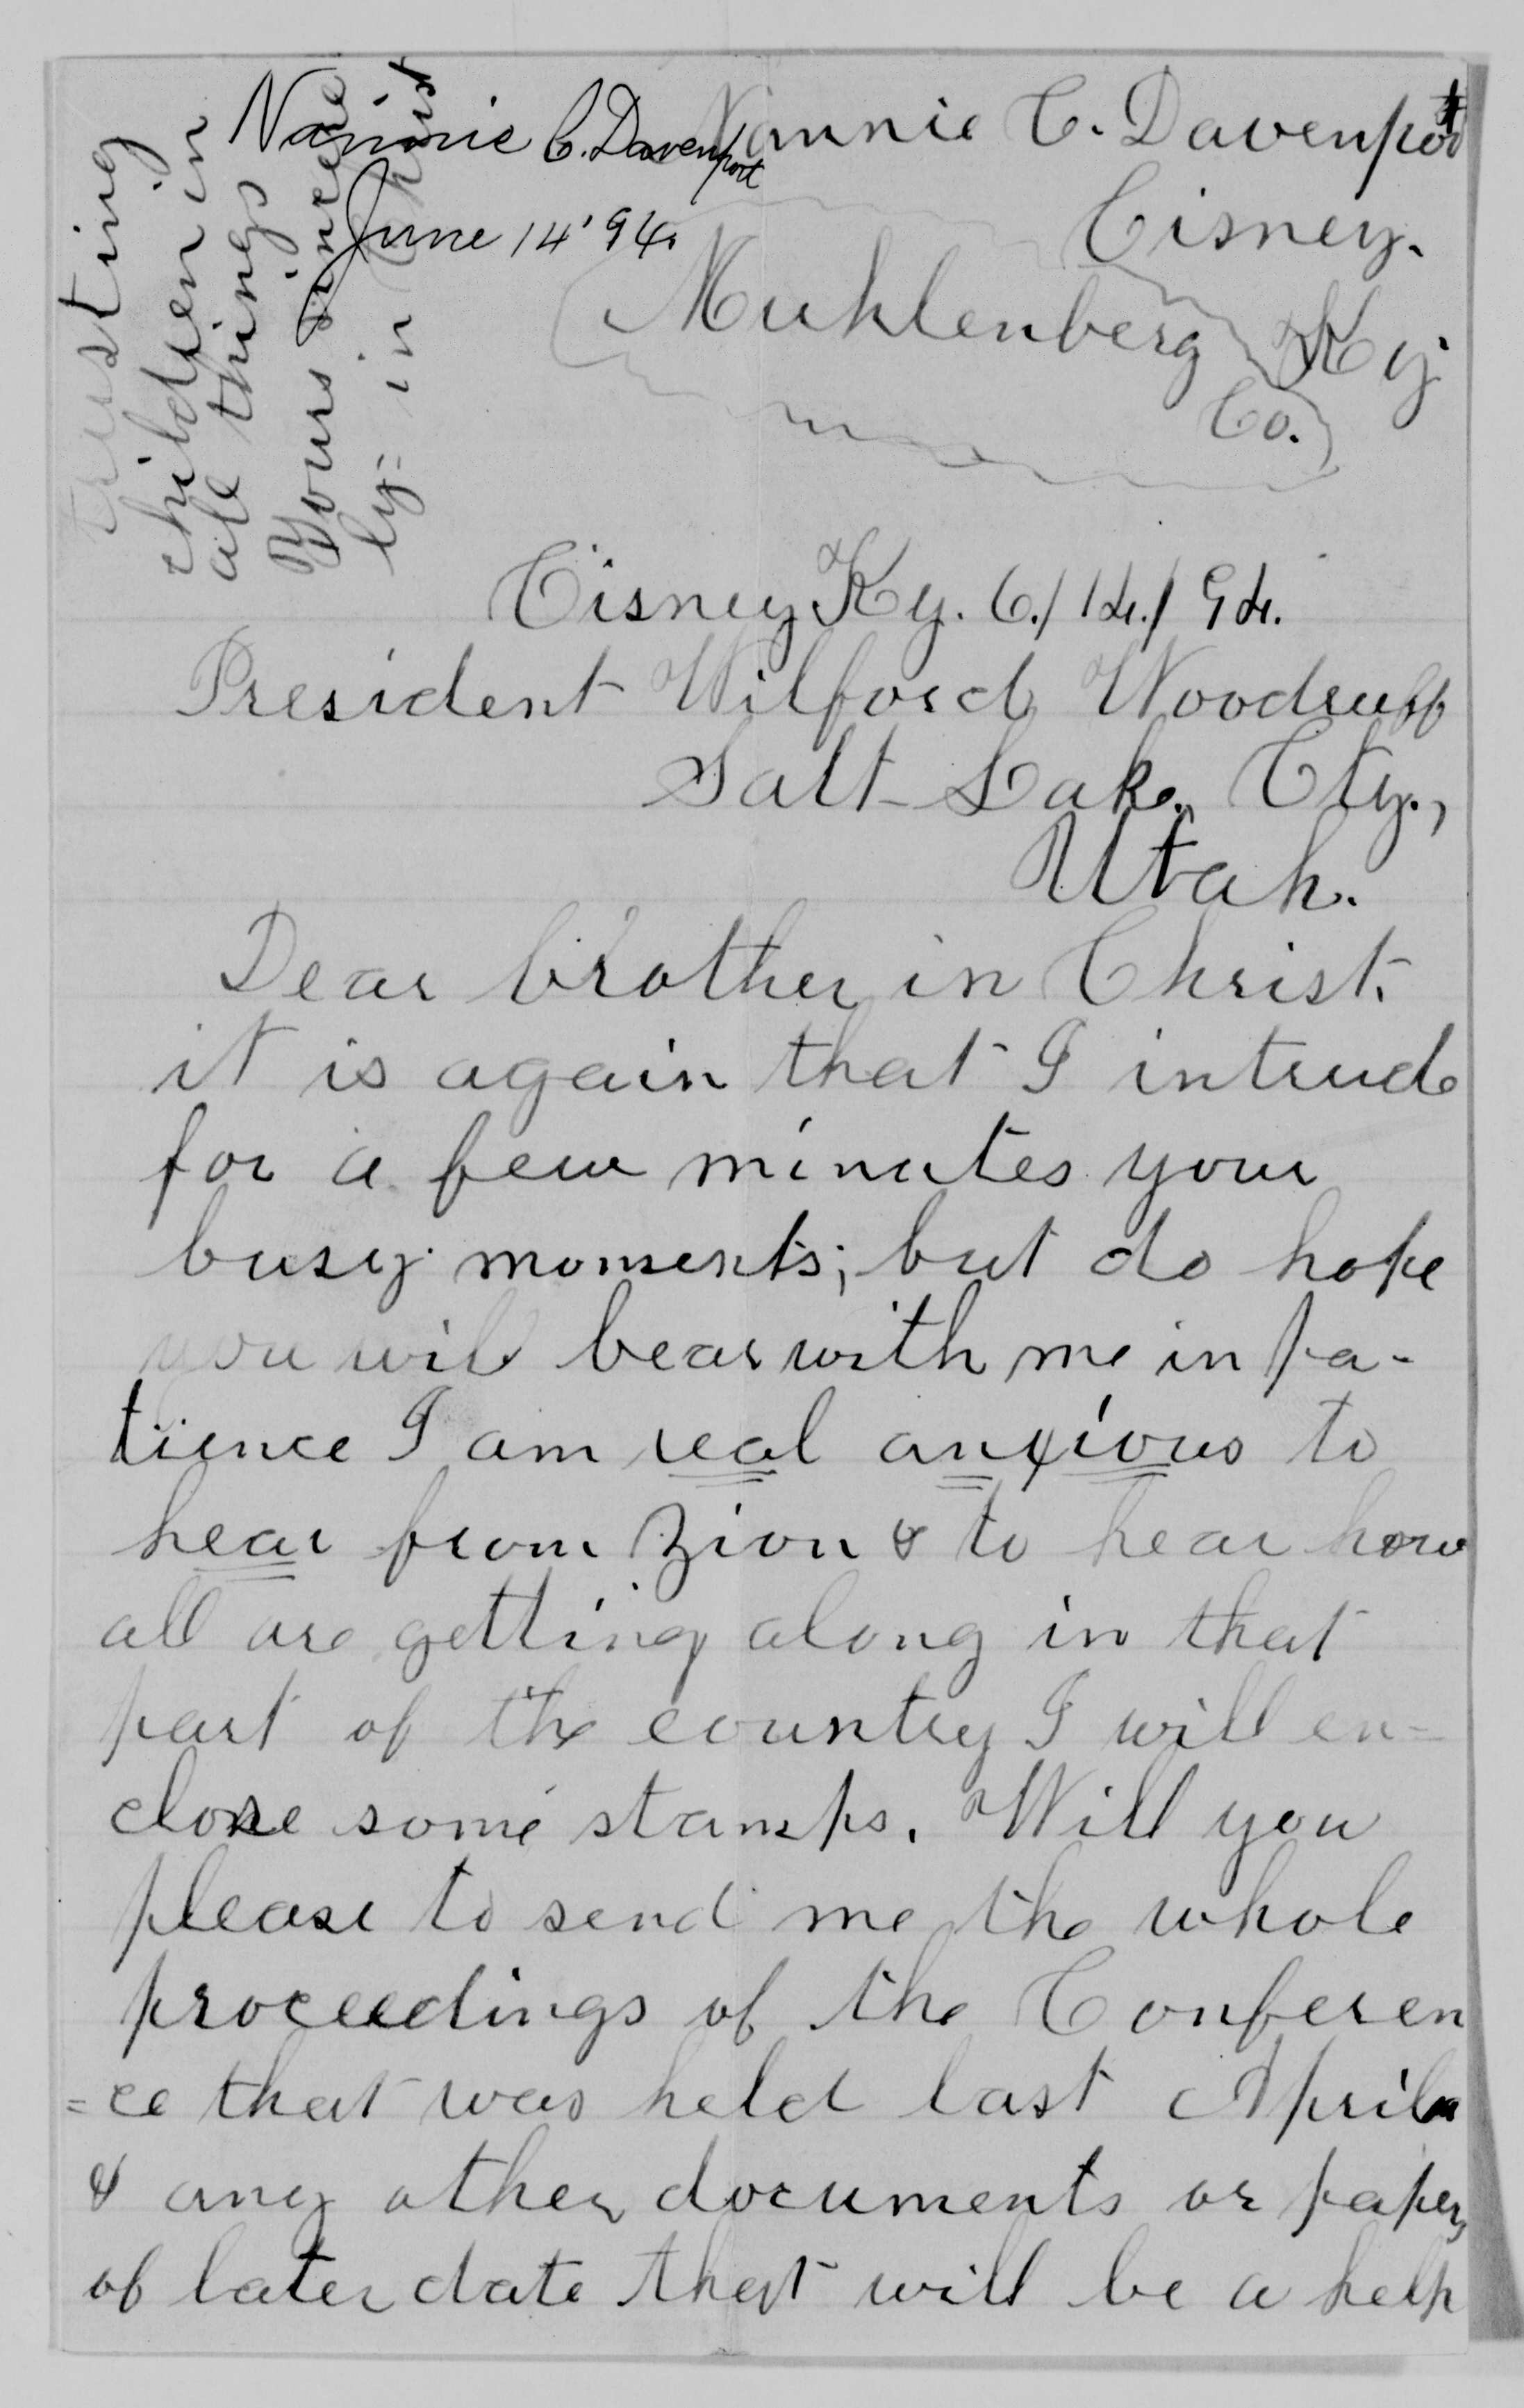 Nannie C. Davenport
June 14' 94.
Nannie C. Davenport
Cisney.
Muhlenberg Ky
Co.
trusting
children in
all things
Yours sincere
ly= in Christ
Cisney Ky. 6./14./94.
President Wilford Woodruff
Salt Lake, Cty.,
Utah.
Dear brother in Christ.
it is again that I intrude
for a few minutes your
busy moments; but do hope
you will bear with me in pa-
tience I am real anxious to
hear from Zion & to hear how
all are getting along in that
part of the country I will en=
close some stamps. Will you
please to send me the whole
proceedings of the Conferen
=ce that was held last April
& any other documents or papers
of later date that will be a help